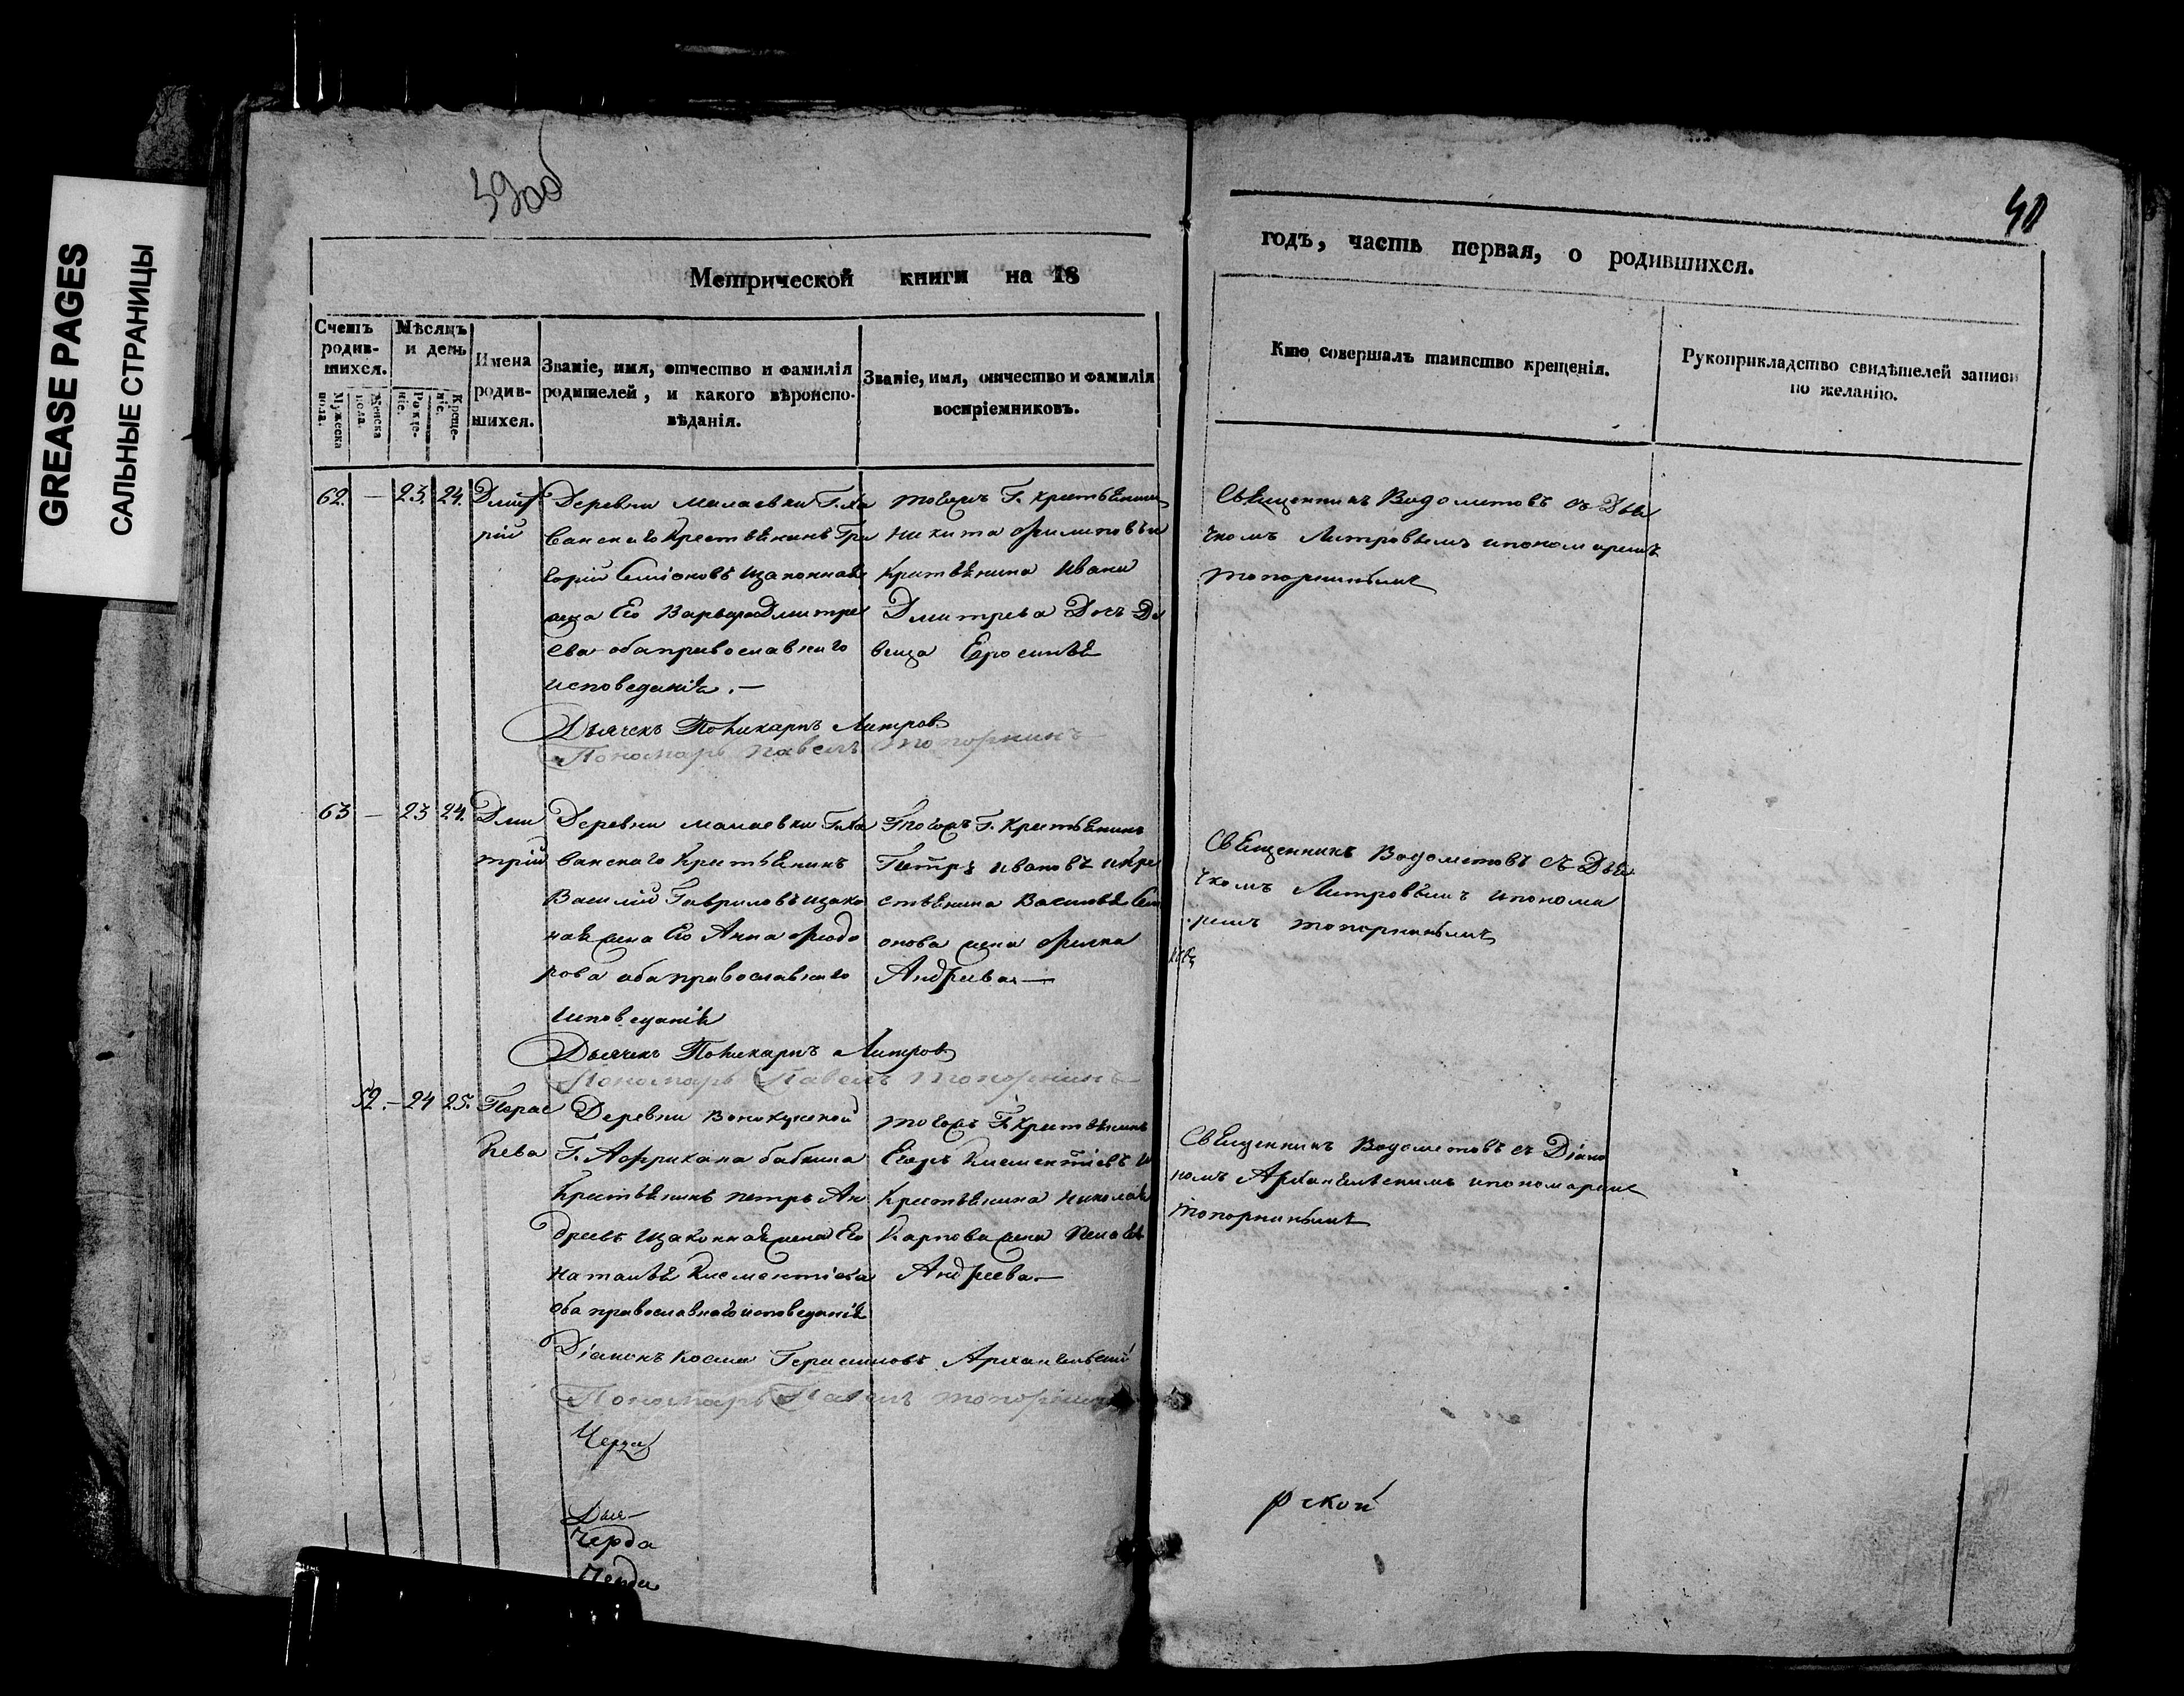 GREASE PAGES
САЛЬНЫЕ СТРАНИЦЫ
39об
40
Метрической книги на 18
годъ, часть первая, о родившихся.
Счетъ родившихся.
Мужеска пола.
Женска пола.
Мѣсяцъ и день
Рожденіе.
Крещеніе.
Имена родившихся.
Званіе, имя, отчество и фамилія
родителей, и какого вѣроиспо-
вѣданія.
Званіе, имя, отчество и фамилія
воспріемниковъ.
Кто совершалъ таинство крещенія.
Рукоприкладство свидѣтелей записи
по желанію.
62. — 23. 24. Дмит
рій
Деревни Малаевки Г.
ванскаго Крестьянинъ Гри
горій Семіоновъ изаконная
жена Его Варвара Дмитре
ева оба православнаго
исповеданія. —
Тогожъ Г. Крестьянинъ
Никита Филиповъ и
Крестьянина Ивана
Дмитрева Дочь Де
вица
Священникъ Водометовъ съ Дья
чкомъ Литровымъ ипономаремъ
Топорнинымъ
Дьячекъ Поликарпъ Литровъ
Пономарь Павелъ Топорнинъ
63 — 23 24. Дми
трій
Деревни Малаевки Г.
ванскаго Крестьянинъ
Василій Гавриловъ изако
ная жена Его Анна Фиодо
рова оба православнаго
исповеданія
Тогожъ Г. Крестьянинъ
Петръ Ивановъ икре
стьянина Василья Сем
онова жена
Андреева —
Священникъ Водометовъ съ Дья
чкомъ Литровымъ ипонома
ремъ Топорнинымъ
Дьячекъ Поликарпъ Литровъ
Пономарь Павелъ Топорнинъ
52. — 24 25. Парас
кева
Деревни
Г. Африкана Бабкина
Крестьянинъ Петръ Ан
дреевъ изаконная жена Его
Наталья Климентіева
оба православнаго исповеданія
Тогожъ Г. Крестьянинъ
Егоръ Климентіевъ и
Крестьянина Николая
Карпова жена Пелагея
Андреева —
Священникъ Водометовъ съ Діако
номъ Архангельскимъ ипономаремъ
Топорнинымъ
Діаконъ Косма Герасимовъ Архангельскій
Пономарь Павелъ Топорнинъ
Черда
Черда
рской